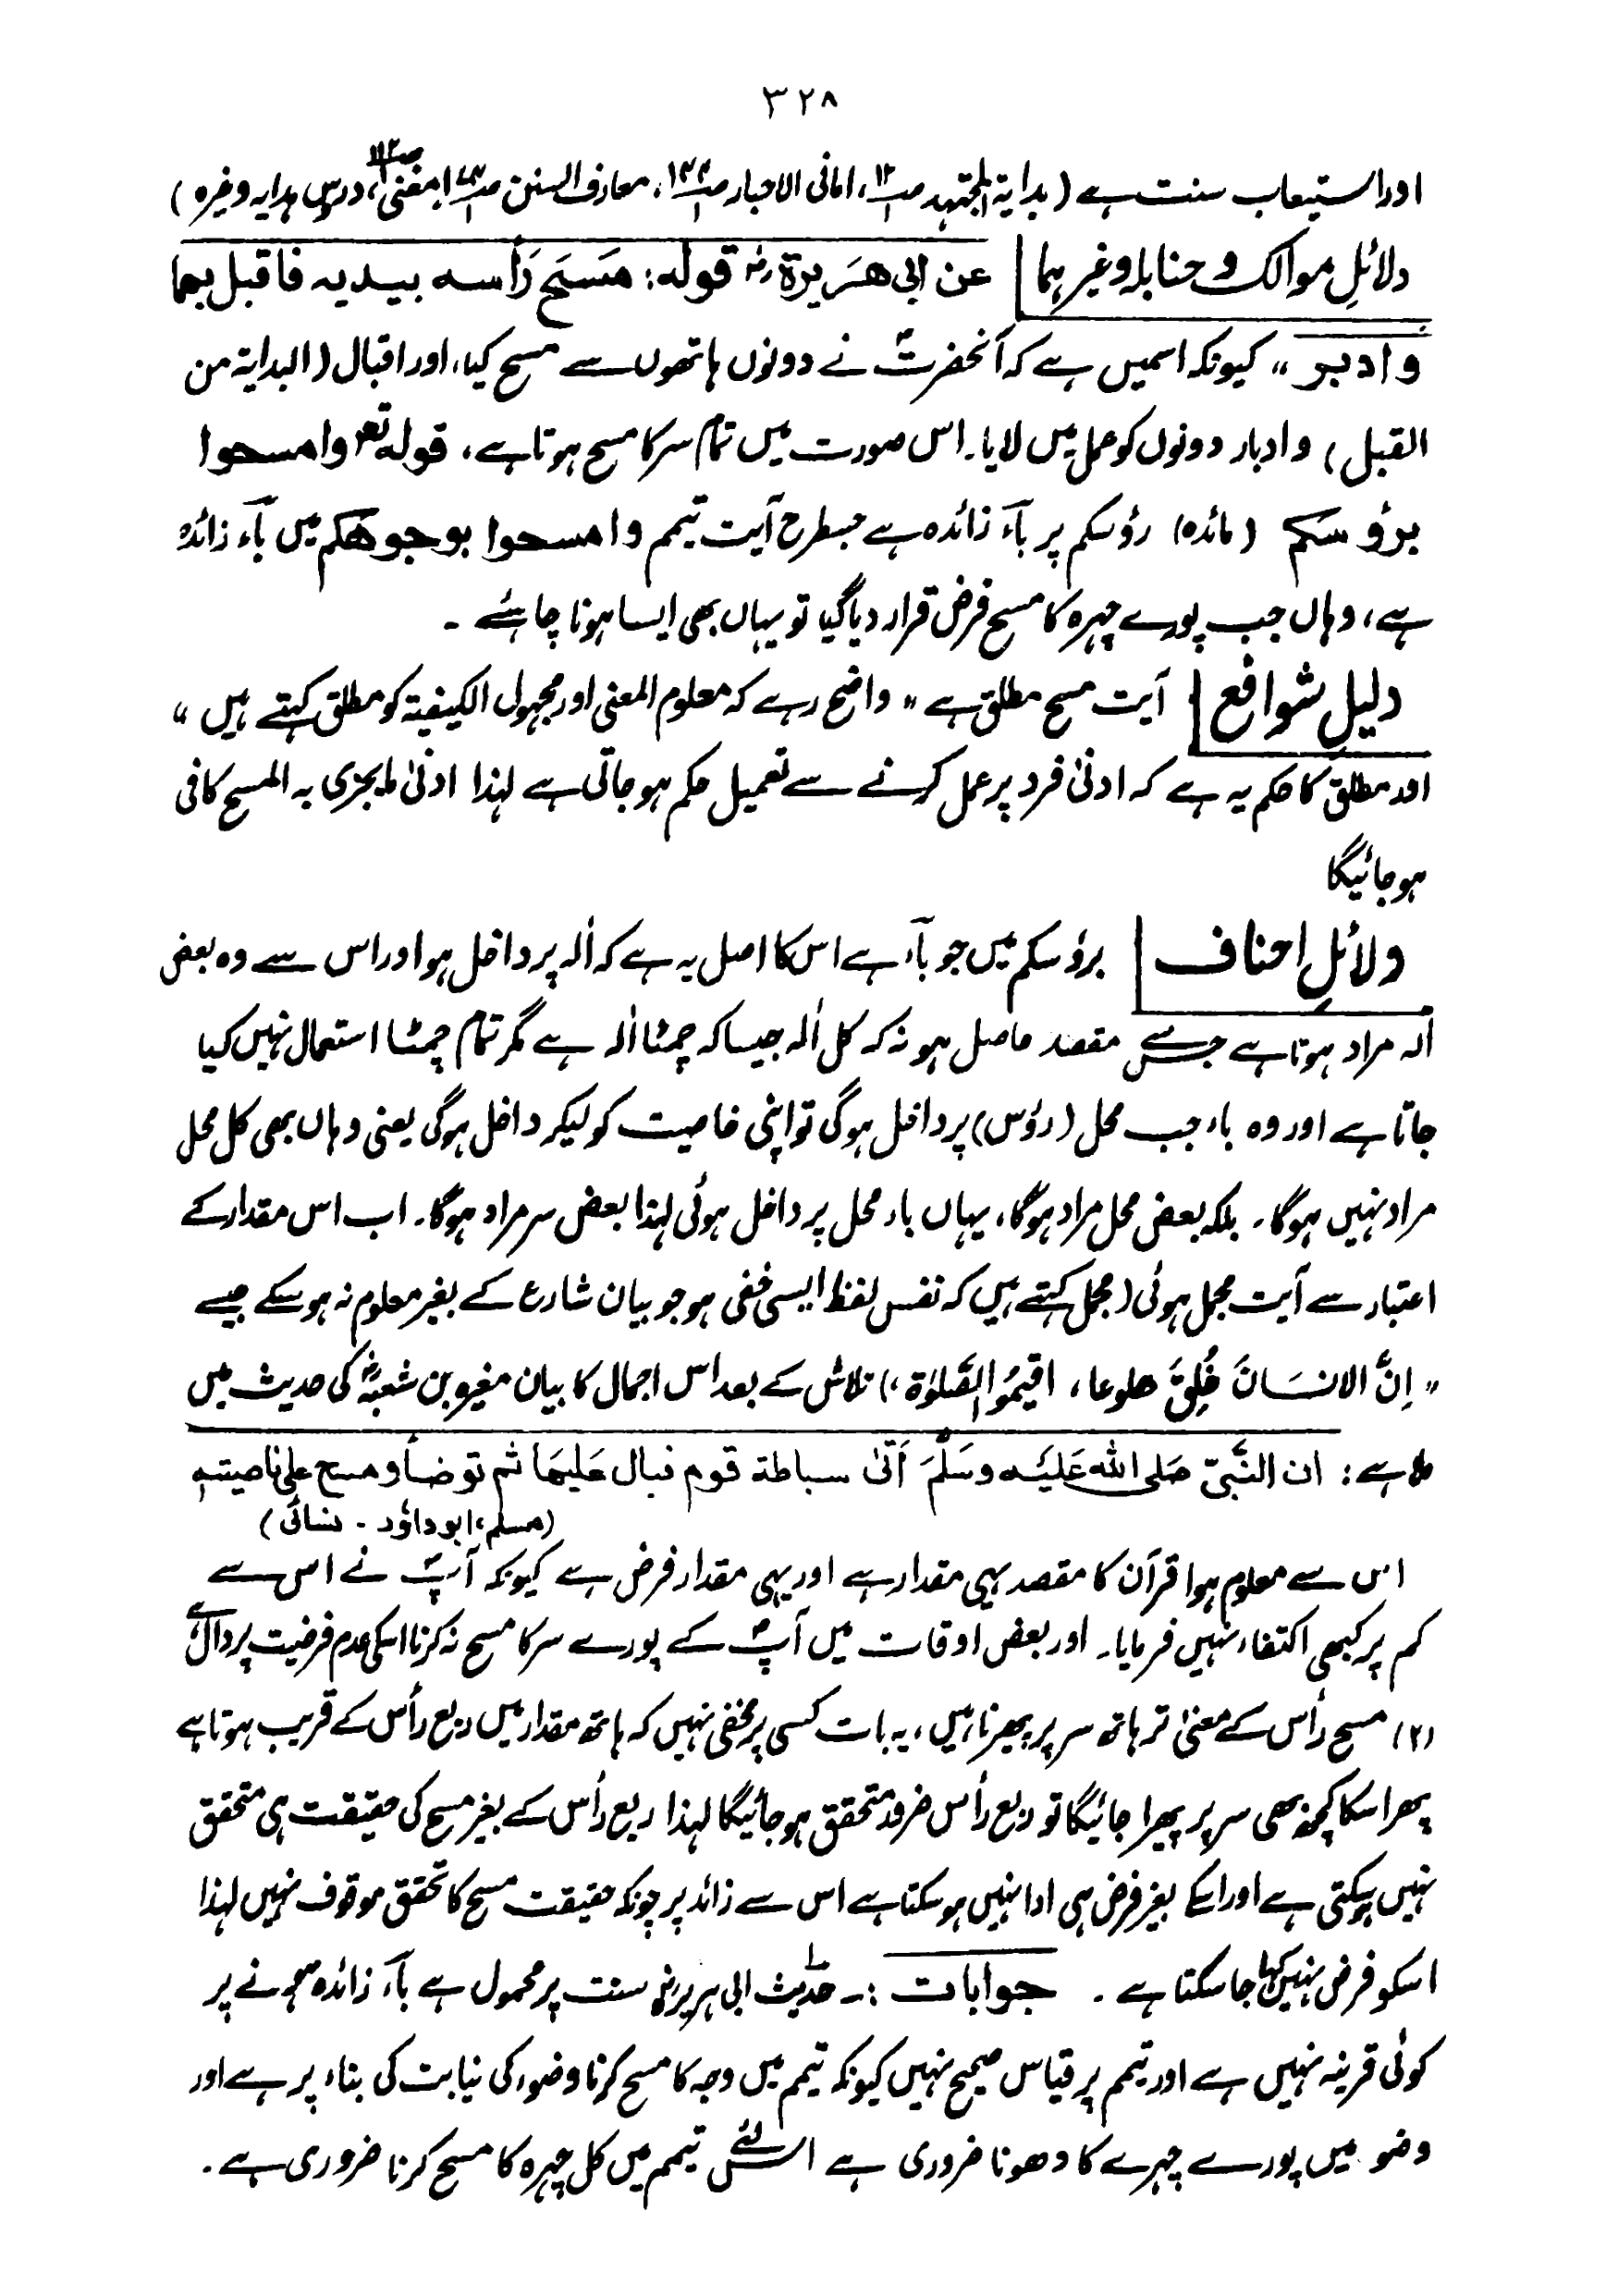 ۳۲۸
اور استیعاب سنت ہے (بدایۃ المجتہد ص۱۲/۱، امانی الاحبار ص۱۳۴/۱، معارف السنن ص/۱ مغنی ص۱۱۲/۱، درس ہدایہ وغیرہ)
دلائلِ موالک و حنابلہ وغیرہما عن ابی ھریرۃ رض قولہ: مَسَحَ رَأسہ بیدیہ فاقبل بھما
وادبر ،، کیونکہ اسمیں ہے کہ آنحضرتؐ نے دونوں ہاتھوں سے مسح کیا، اور اقبال (البدایۃ من
القبل) و ادبار دونوں کو عمل میں لایا۔ اس صورت میں تمام سر کا مسح ہوتا ہے، قولہ تعہ وامسحوا
برؤسکم (مائدہ) رؤسکم پر بآء زائدہ ہے جسطرح آیت تیمم وامسحوا بوجوھکم میں بآء زائدہ
ہے، وہاں جب پورے چہرہ کا مسح فرض قرار دیا گیا تو یہاں بھی ایسا ہونا چاہئے ۔
دلیلِ شوافع آیت مسح مطلق ہے ،، واضح رہے کہ معلوم المعنی اور مجہول الکیفیۃ کو مطلق کہتے ہیں ،،
اور مطلق کا حکم یہ ہے کہ ادنیٰ فرد پر عمل کرنے سے تعمیل حکم ہو جاتی ہے لہذا ادنیٰ مایجزی بہ المسح کافی
ہو جائیگا
دلائلِ احناف برؤسکم میں جو بآء ہے اس کا اصل یہ ہے کہ اٰلہ پر داخل ہو اور اس سے وہ بعض
اٰلہ مراد ہوتا ہے جس سے مقصد حاصل ہو نہ کہ کل اٰلہ جیسا کہ چمٹا اٰلہ ہے مگر تمام چمٹا استعمال نہیں کیا
جاتا ہے اور وہ باء جب محل (رؤس) پر داخل ہوگی تو اپنی خاصیت کو لیکر داخل ہوگی یعنی وہاں بھی کل محل
مراد نہیں ہوگا۔ بلکہ بعض محل مراد ہوگا، یہاں باء محل پر داخل ہوئی لہذا بعض سر مراد ہوگا۔ اب اس مقدار کے
اعتبار سے آیت مجمل ہوئی (مجمل کہتے ہیں کہ نفس لفظ ایسی خفی ہو جو بیان شارع کے بغیر معلوم نہ ہو سکے جیسے
،، اِنَّ الانسَانَ خُلِقَ ھلوعا، اقیمُوا الصَّلوٰۃ ،) تلاش کے بعد اس اجمال کا بیان مغیرہ بن شعبہؓ کی حدیث میں
ملا ہے: ان النَّبِیَّ صَلی اللہ عَلَیہ وسَلَّمَ اَتیٰ سباطۃ قوم فبال عَلیھَا ثم توضأ و مسح علی ناصیتہ
(مسلم، ابو داؤد ۔ نسائی)
اس سے معلوم ہوا قرآن کا مقصد یہی مقدار ہے اور یہی مقدار فرض ہے کیونکہ آپؐ نے اس سے
کم پر کبھی اکتفاء نہیں فرمایا۔ اور بعض اوقات میں آپؐ کے پورے سر کا مسح نہ کرنا اسکی عدم فرضیت پر دال ہے
(۲) مسح رأس کے معنیٰ تر ہاتھ سر پر پھیرنا ہیں، یہ بات کسی پر مخفی نہیں کہ ہاتھ مقدار میں ربع رأس کے قریب ہوتا ہے
پھر اسکا کچھ بھی سر پر پھیرا جائیگا تو ربع رأس ضرور متحقق ہو جائیگا لہذا ربع رأس کے بغیر مسح کی حقیقت ہی متحقق
نہیں ہوسکتی ہے اور اسکے بغیر فرض ہی ادا نہیں ہو سکتا ہے اس سے زائد پر چونکہ حقیقت مسح کا تحقق موقوف نہیں لہذا
اسکو فرض نہیں کہا جا سکتا ہے ۔ جوابات :۔ ۱ حدیث ابی ہریرہؓ سنت پر محمول ہے بآء زائدہ ہونے پر
کوئی قرینہ نہیں ہے اور تیمم پر قیاس صحیح نہیں کیونکہ تیمم میں وجہ کا مسح کرنا وضوء کی نیابت کی بناء پر ہے اور
وضو میں پورے چہرے کا دھونا ضروری ہے اس لئے تیمم میں کل چہرہ کا مسح کرنا ضروری ہے ۔